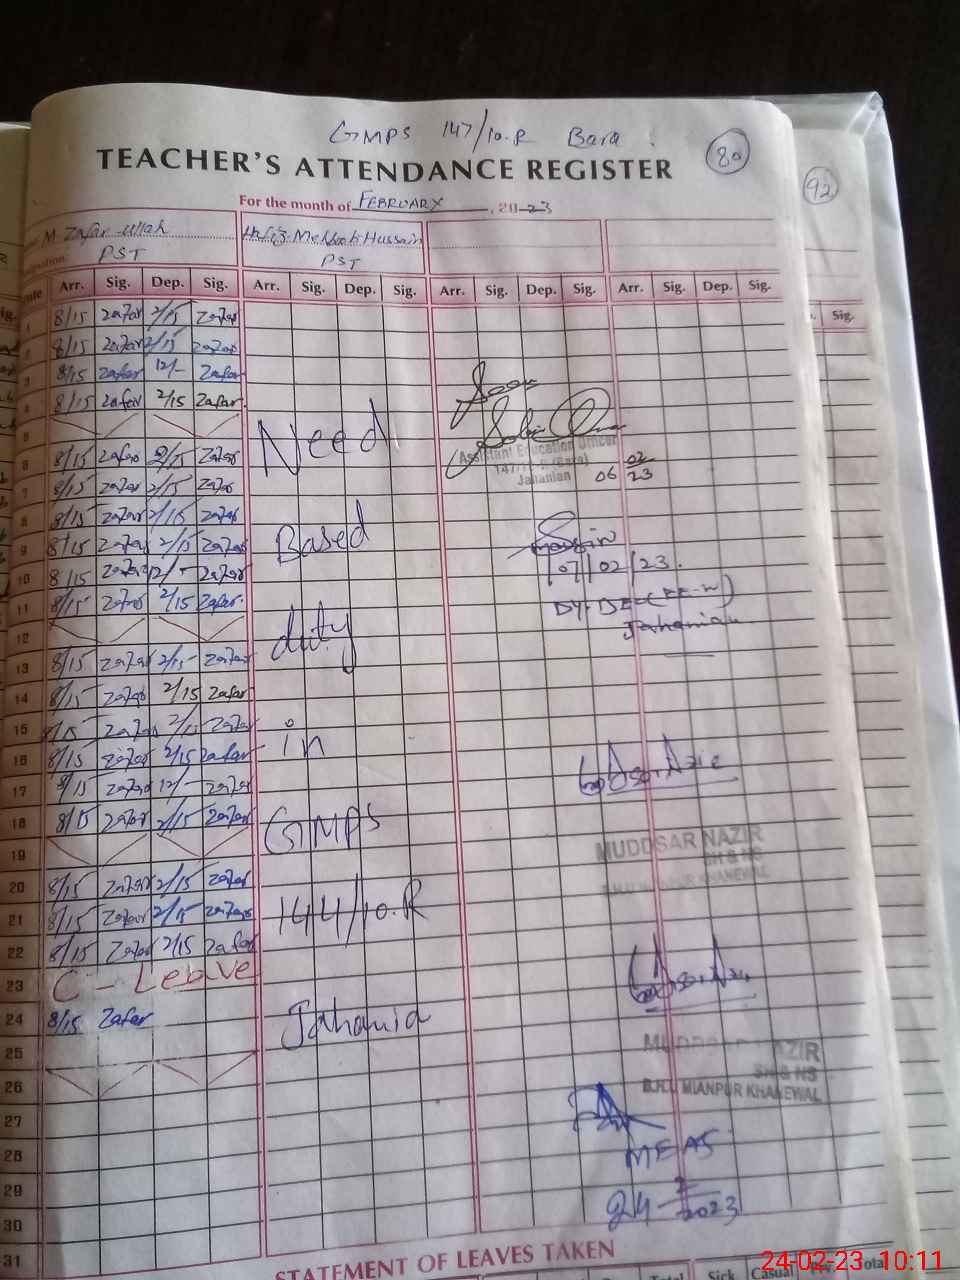 GMPS 147/10.R Bara
80
92
TEACHER'S ATTENDANCE REGISTER
For the month of FEBRUARY, 2023
M Zafar-ullah
Hafiz Mehboob Hussain
PST PST
Arr. Sig. Dep. Sig. Arr. Sig. Dep. Sig. Arr. Sig. Dep. Sig. Arr. Sig. Dep. Sig. Sig.
8/15 Zafar 2/15 Zafar
8/15 Zafar 2/15 Zafar
3 8/15 Zafar 12/- Zafar
4 8/15 Zafar 2/15 Zafar
5
6 8/15 Zafar 2/15 Zafar
7 8/15 Zafar 2/15 Zafar
8 8/15 Zafar 2/15 Zafar
9 8/15 Zafar 2/15 Zafar
10 8/15 Zafar 12/- Zafar
11 8/15 Zafar 2/15 Zafar
12
13 8/15 Zafar 2/15 Zafar
14 8/15 Zafar 2/15 Zafar
15 8/15 Zafar 2/15 Zafar
16 8/15 Zafar 2/15 Zafar
17 8/15 Zafar 12/- Zafar
18 8/15 Zafar 2/15 Zafar
19
20 8/15 Zafar 2/15 Zafar
21 8/15 Zafar 2/15 Zafar
22 8/15 Zafar 2/15 Zafar
23 C - Leave
24 8/15 Zafar
25
26
27
28
29
30
31
Need
Based
duty
in
GMPS
144/10.R
Jahania
Assistant Education Officer
147/10.R (Bara)
Jahanian
06 02/23
07/02/23.
DY. DEO (EE-W)
Jahanian
MUDDSAR NAZIR
SH & NS
B.H.U MIANPUR KHANEWAL
MUDDSAR NAZIR
SH & NS
B.H.U MIANPUR KHANEWAL
MEAS
24-2-2023
STATEMENT OF LEAVES TAKEN
Total Sick Casual Total
24-02-23 10:11